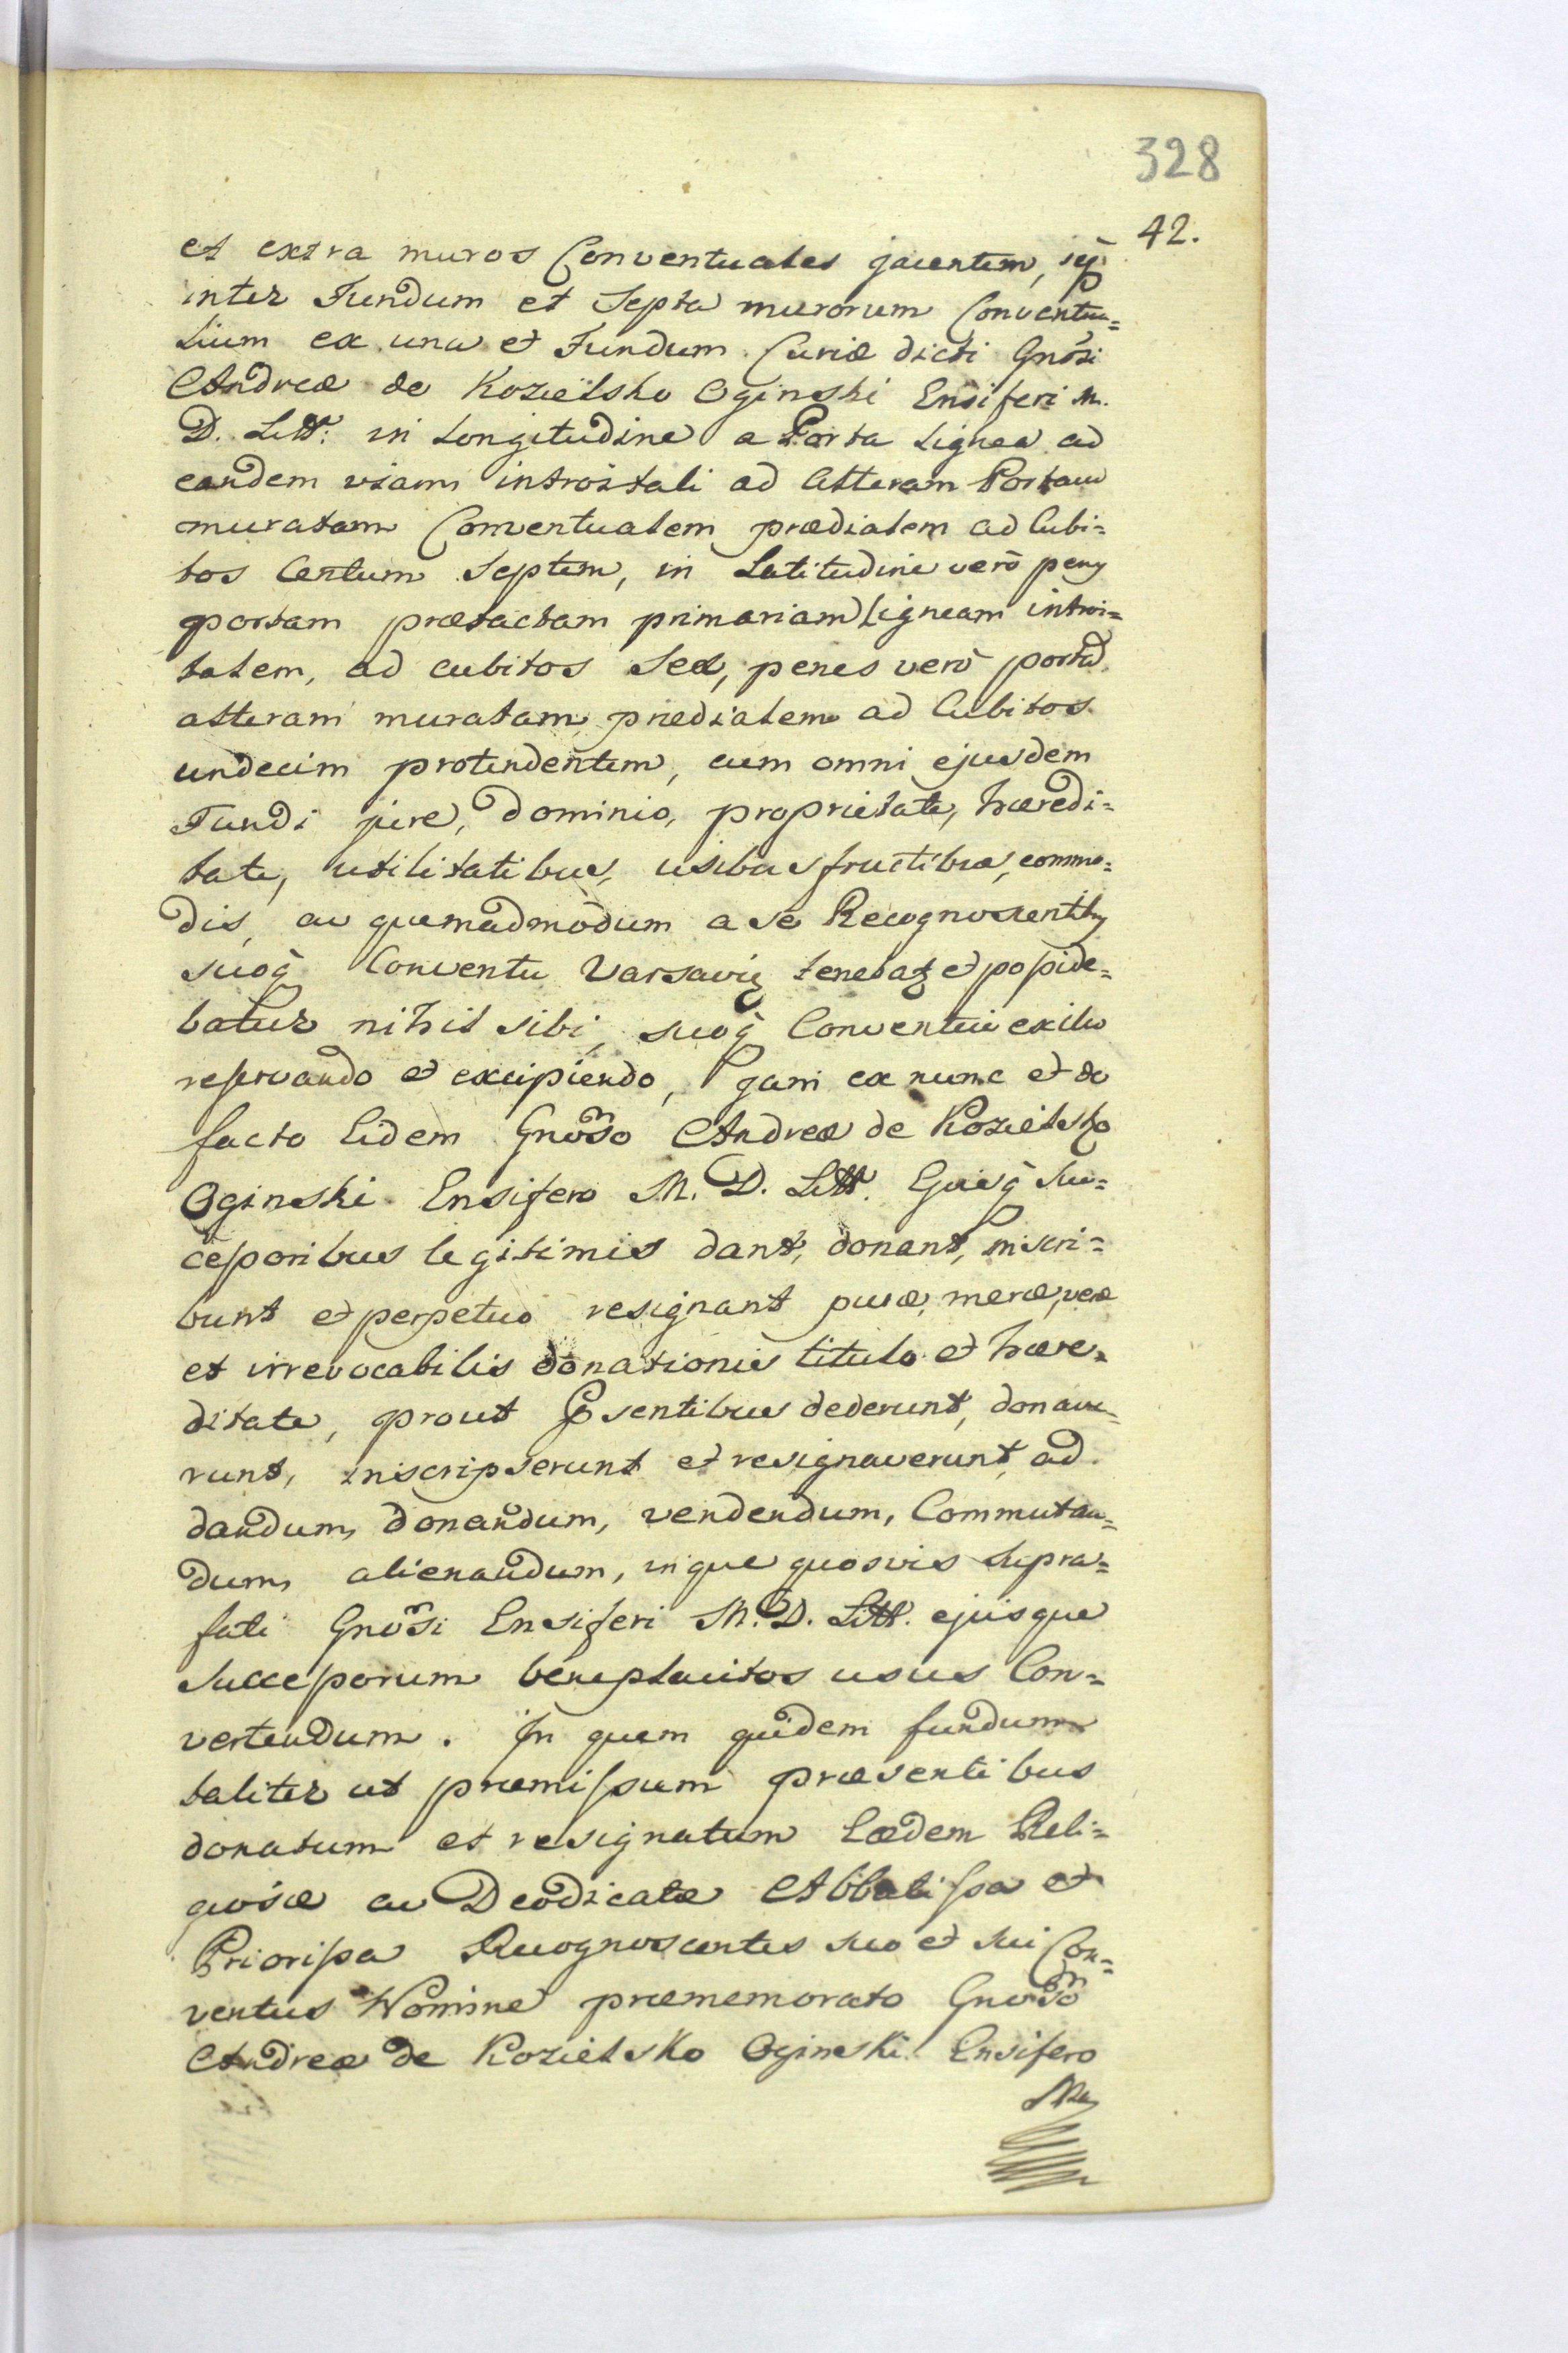 328
42.
et extra muros Conventuales jacentem,
inter Fundum et Septa murorum Conventua=
lium ex una et Fundum Curiæ dicti Gnosi
Andreæ de Kozielsko Oginski Ensiferi M.
D. Litt: in Longitudine a Porta Lignea ad
eandem viam introitali ad Alteram Portam
muratam Conventualem prædialem ad Cubi=
tos Centum Septem, in Latitudine verò peny
portam prætactam primariam Ligneam introi=
talem, ad cubitos Sex, penes verò portã
alteram muratam prædialem ad Cubitos
undecim protendentem, cum omni ejusdem
Fundi jure, Dominio, proprietate, hæredi=
tate, utilitatibus, usibusfructibus, commo=
dis, ac quemadmodum a se Recognoscentiby
suoq̃ Conventu Varsavię tenebat et posside=
batur nihil sibi, suoq̃ Conventui exilio
reservando et excipiendo, jam ex nunc et de
facto Eidem Gnõso Andreæ de Kozielsko
Oginski Ensifero M. D. Litt. Ejusq̃ Suc=
cessoribus legitimis dant, donant, inscri=
bunt et perpetuo resignant puræ, meræ, veræ
et irrevocabilis donationis titulo et hære=
ditate, prout Psentibus dederunt, donave=
runt, inscripserunt et resignaverunt, ad
dandum, donandum, vendendum, Commutan=
dum, alienandum, inque quosvis Supra=
fati Gnõsi Ensiferi M. D. Litt. ejusque
Successorum beneplacitos usus Con=
vertendum. In quem quidem fundum
taliter ut præmissum præsentibus
donatum et resignatum Eædem Reli=
giosæ ac Deodicatæ Abbatissa et
Priorissa Recognoscentes suo et sui Con=
ventus Nomine præmemorato Gnõso
Andreæ de Kozielsko Oginski Ensifero